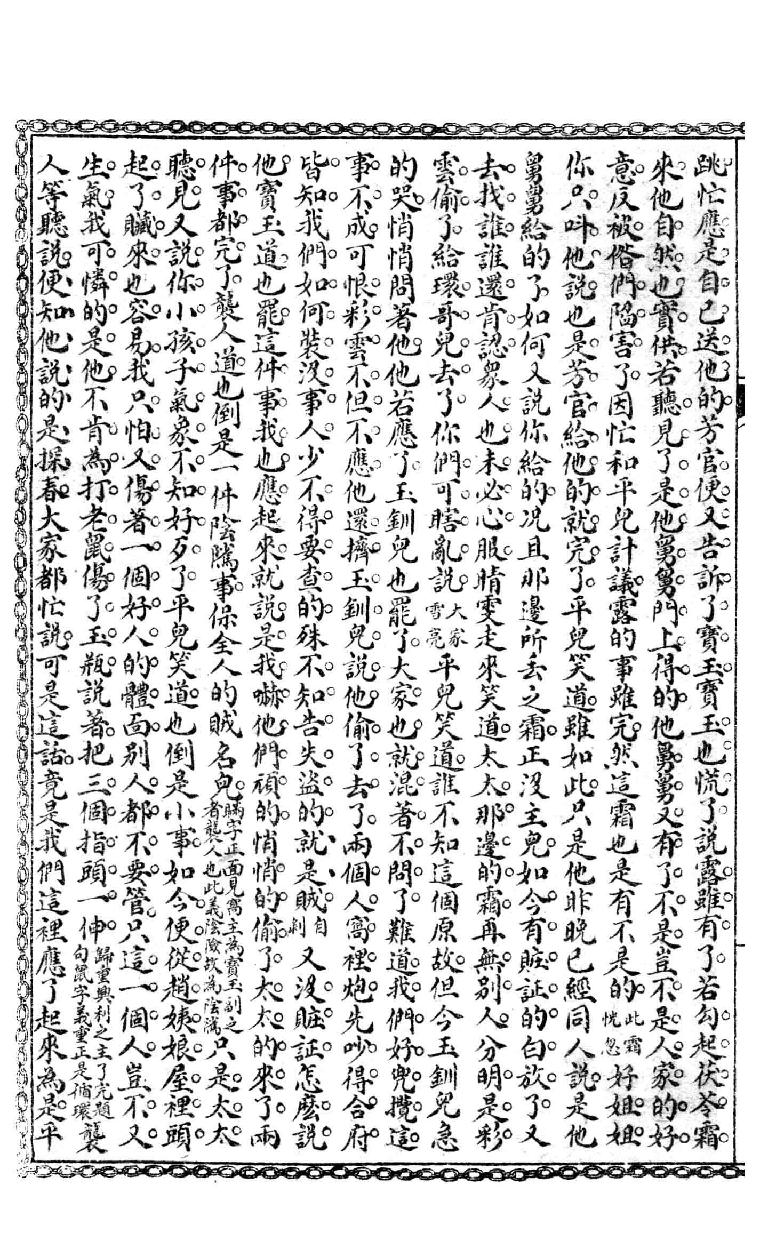 跳忙應是自己送他的芳官便又告訴了寶玉寶玉也慌了說露雖有了若勾起茯苓霜
來他自然也實供若聽見了是他舅舅門上得的他舅舅又有了不是豈不是人家的好
意反被偺們陥害了因忙和平兒計議露的事雖完然這霜也是有不是的此霜恍忽好姐姐
你只叫他說也是芳官給他的就完了平兒笑道雖如此只是他昨晚已經同人說是他
舅舅給的了如何又說你給的况且那邊所丢之霜正沒主兒如今有賍証的白放了又
去找誰誰還肯認衆人也未必心服晴雯走來笑道太太那邊的霜再無別人分明是彩
雲偷了給環哥兒去了你們可瞎亂說大家雪亮平兒笑道誰不知這個原故但今玉釧兒急
的哭悄悄問著他他若應了玉釧兒也罷了大家也就混著不問了難道我們好兜攬這
事不成可恨彩雲不但不應他還擠玉釧兒說他偷了去了兩個人窩裡炮先吵得合府
皆知我們如何裝沒事人少不得要查的殊不知告失盜的就是賊自刺又沒賍証怎麽說
他寶玉道也罷這件事我也應起來就說是我嚇他們頑的悄悄的偷了太太的來了兩
件事都完了襲人道也倒是一件陰隲事保全人的賊名兒瞞字正面見窩主為寶玉副之者襲人也此義陰險故為陰隲只是太太
聽見又說你小孩子氣象不知好歹了平兒笑道也倒是小事如今便從趙姨娘屋裡頭
起了贓來也容易我只怕又傷著一個好人的體面別人都不要管只這一個人豈不又
生氣我可憐的是他不肯為打老鼠傷了玉瓶說着把三個指頭一伸歸重興利之主了完題句鼠字義重正是循環襲
人等聽說便知他說的是探春大家都忙說可是這話竟是我們這裡應了起來為是平